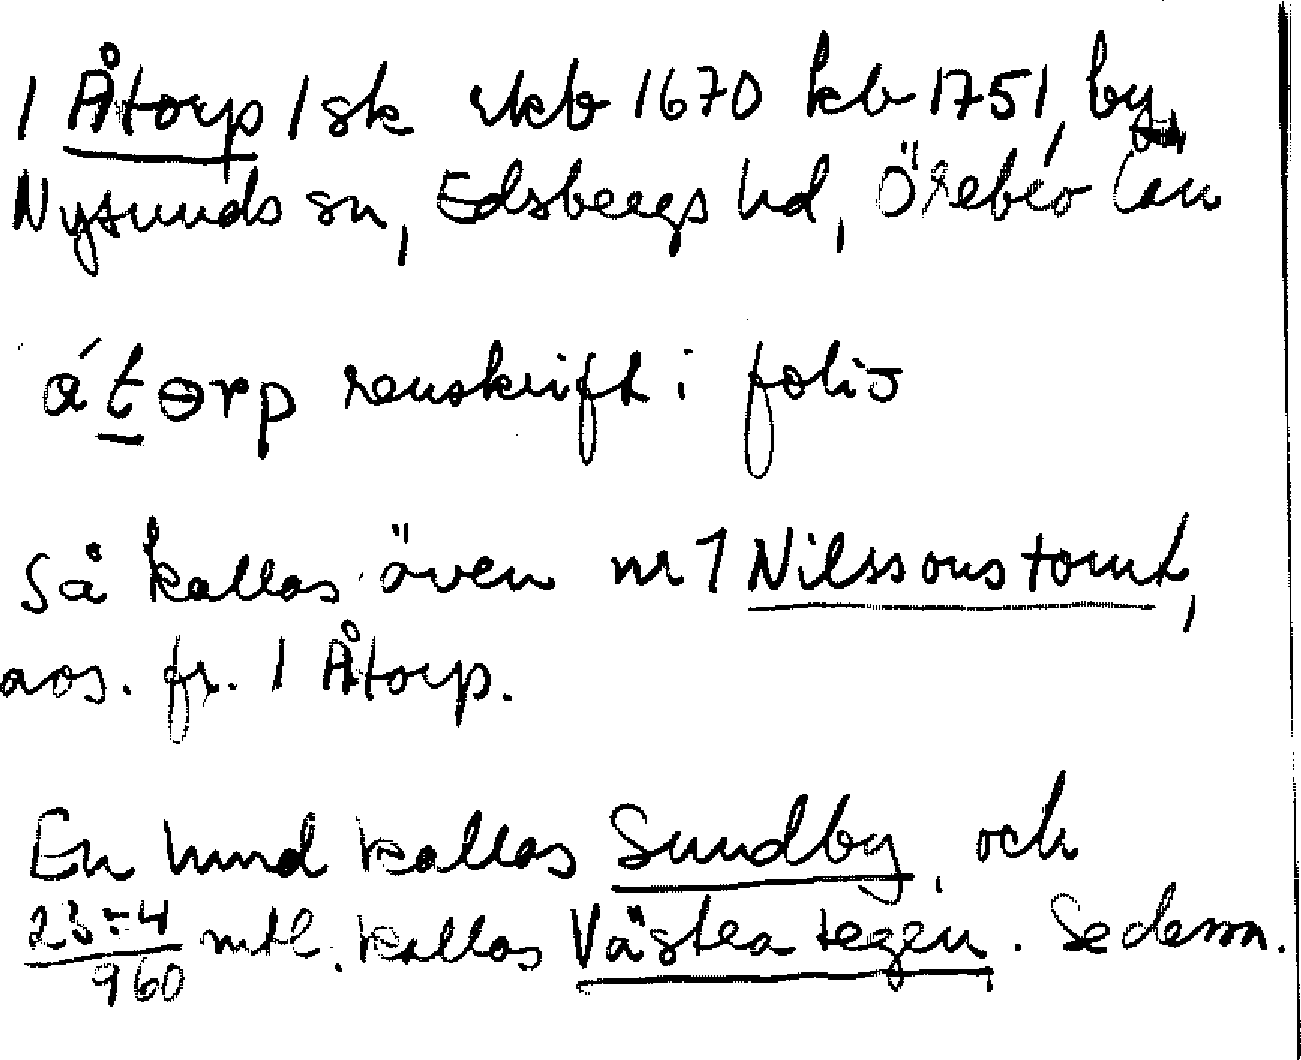 1 Åtorp 1 sk skb 1670 kb 1751, by
Nysunds sn, Edsbergs hd, Örebro län
átɵrp renskrift i folio
Så kallas även nr 1 Nilssonstomt,
avs. fr. 1 Åtorp.
En hmd kallas Sundby, och
23:4/960 mtl. kallas Västra tegen. Se dessa.